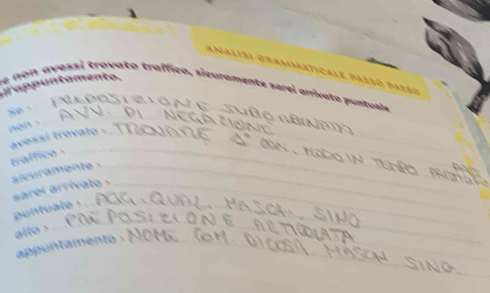 ANALISI GRAMMATICALE PASSO PASSO
non avessi trovato traffico, sicuramente sarei arrivato puntuale
all'appuntamento.
Se SUBORDINATA
non AVV. DI NEGAZIONE
avessi trovato TROVARE 1° CON. MODO IN TEMPO
traffico
sicuramente
sarei arrivato
puntuale AGG. QUAL. MASCH. SING
allo PREPOSIZIONE ARTICOLATA
appuntamento NOME COM. DI COSA MASCH SING